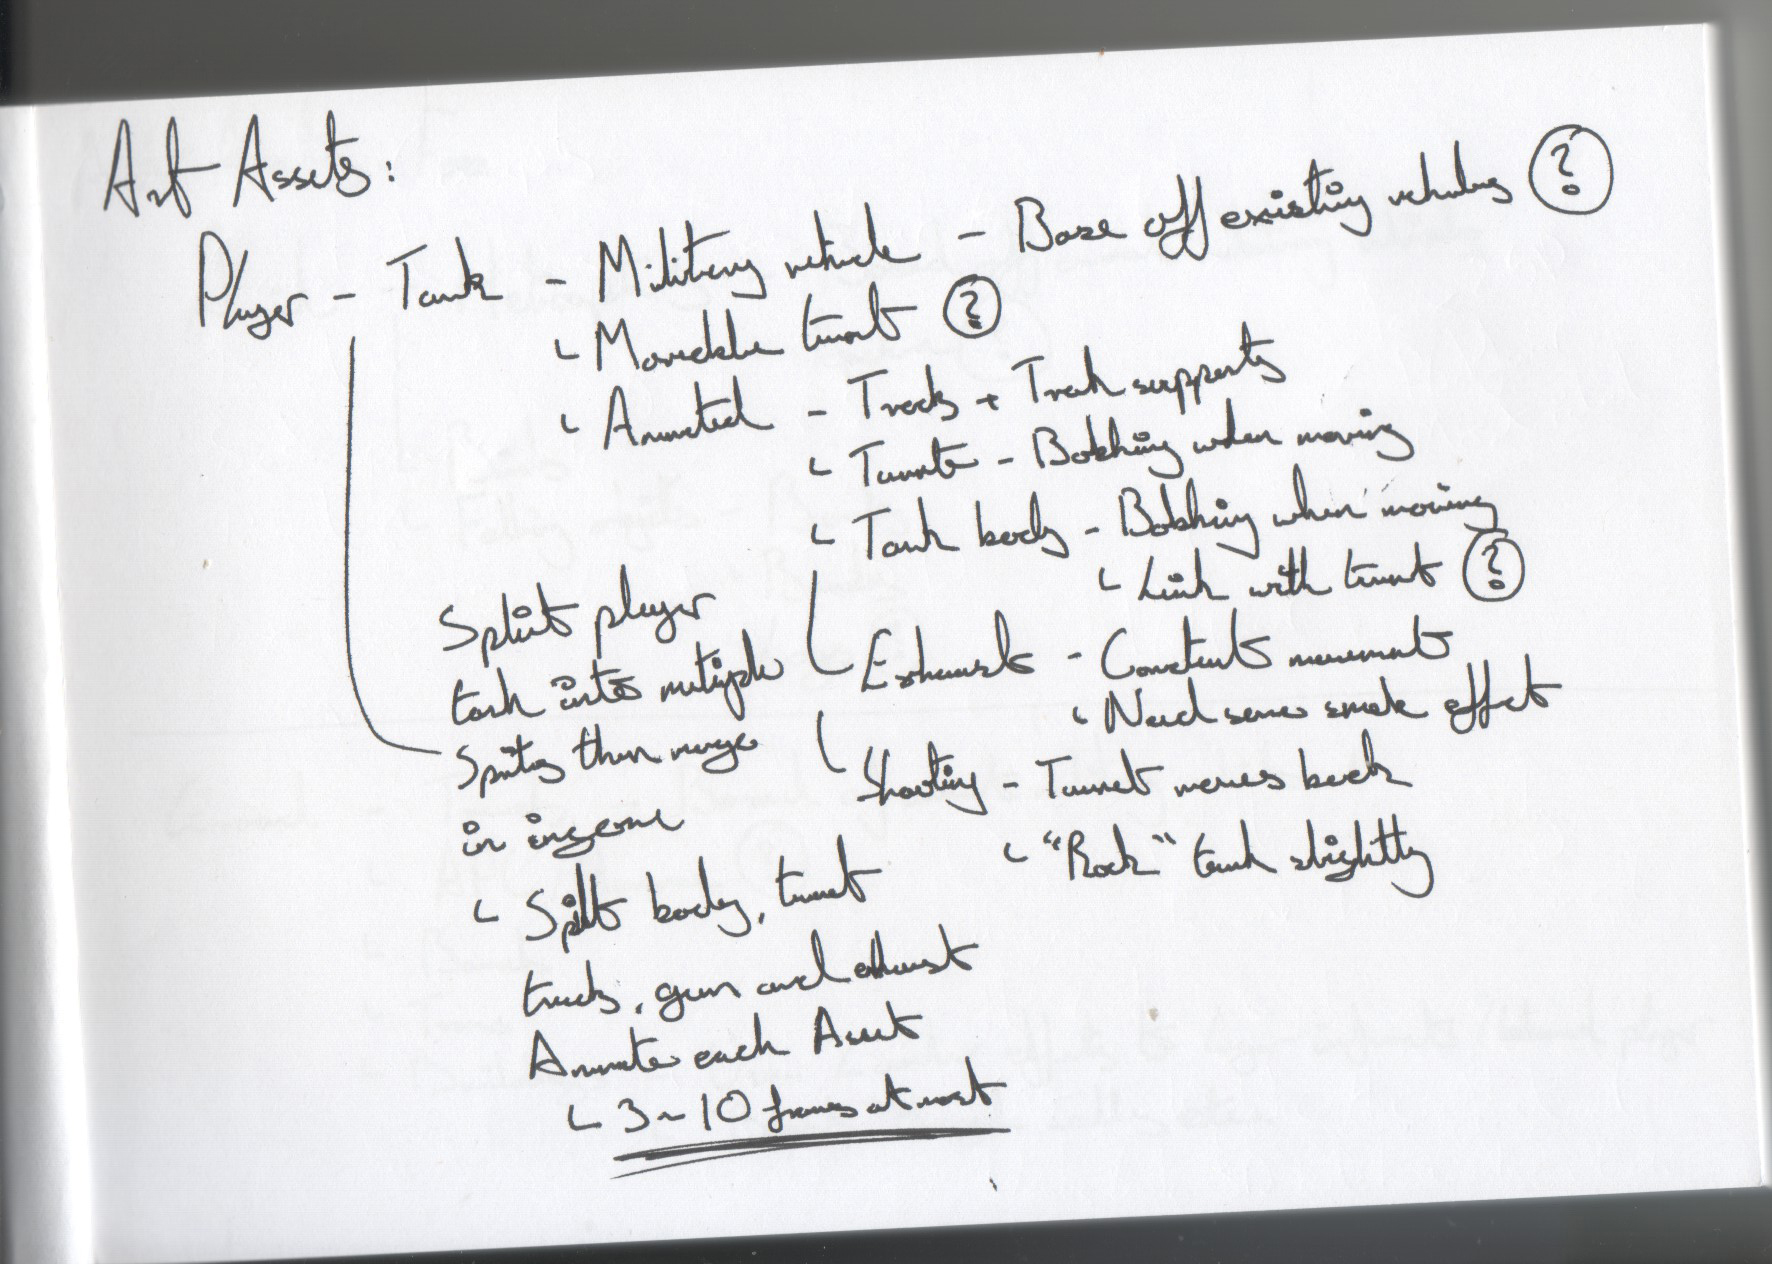 Art Assets:
Player - Tank - Military vehicle - Base off existing vehicles ?
Moveable turret ?
Animated - Tracks + Track supports
Turrets - Bobbing when moving
Tank body - Bobbing when moving
Link with turret ?
Exhausts - Constant movements
Need some smoke effect
Shooting - Turret moves back
"Rock" tank slightly
Split player
tank into multiple
Sprites then merge
in ingame
Split body, turret
tracks, gun and exhaust
Animate each Asset
3 ~ 10 frames at most